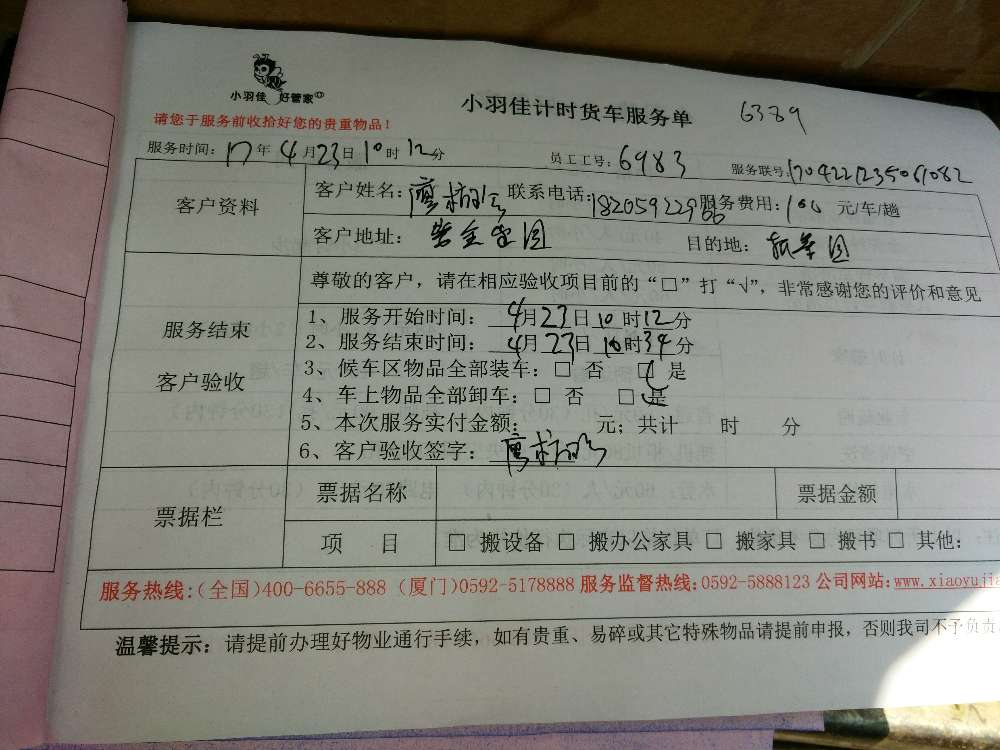 小羽佳 好管家
小羽佳计时货车服务单 6389
请您于服务前收拾好您的贵重物品！
服务时间：17年4月23日10时12分 员工工号：6983 服务联号：
客户资料 客户姓名：廖 联系电话：18205922966 服务费用：100 元/车/趟
客户地址： 目的地：
尊敬的客户，请在相应验收项目前的“□”打“√”，非常感谢您的评价和意见
服务结束
客户验收
1、服务开始时间：4月23日10时12分
2、服务结束时间：4月23日10时34分
3、候车区物品全部装车：□ 否 □ 是
4、车上物品全部卸车：□ 否 □ 是
5、本次服务实付金额： 元；共计 时 分
6、客户验收签字：廖
票据栏 票据名称 票据金额
项 目 □ 搬设备 □ 搬办公家具 □ 搬家具 □ 搬书 □ 其他：
服务热线：（全国）400-6655-888（厦门）0592-5178888 服务监督热线：0592-5888123 公司网站：www.xiaoyujia
温馨提示：请提前办理好物业通行手续，如有贵重、易碎或其它特殊物品请提前申报，否则我司不予负责